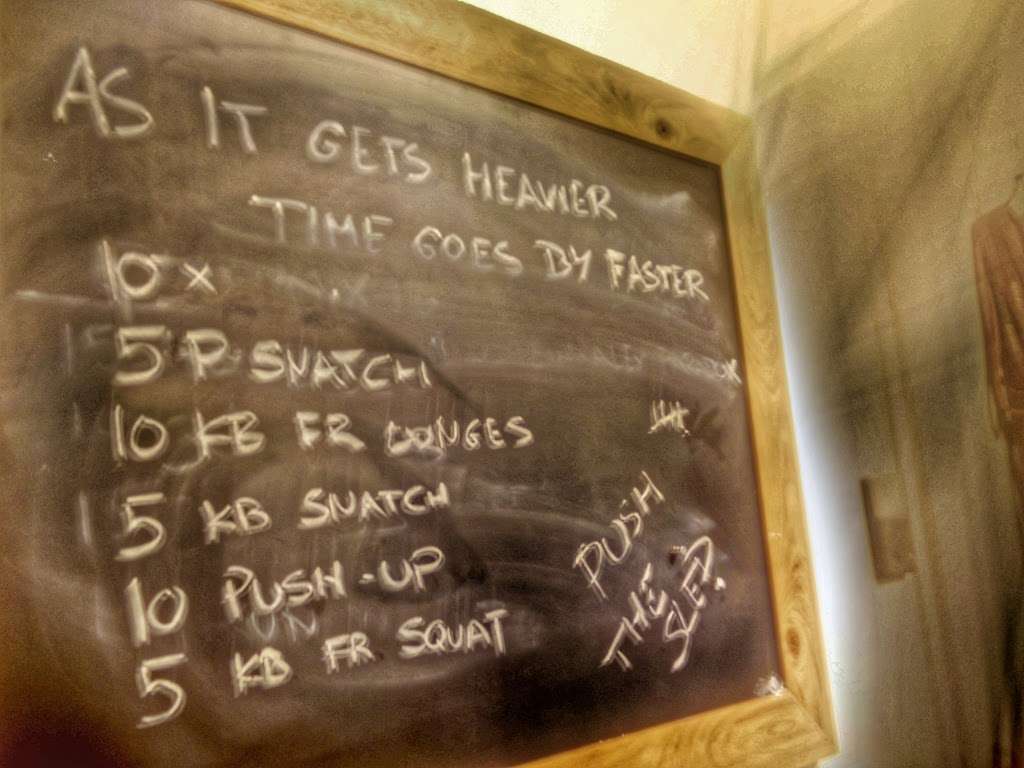 AS IT GETS HEAVIER
TIME GOES BY FASTER
10 x
5 P SNATCH
10 KB FR LUNGES
5 KB SNATCH
10 PUSH-UP
5 KB FR SQUAT
PUSH
THE
SLED.